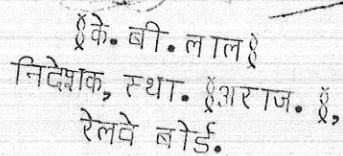 (के. बी. लाल)
निदेशक, स्था. (अराज.),
रेलवे बोर्ड.